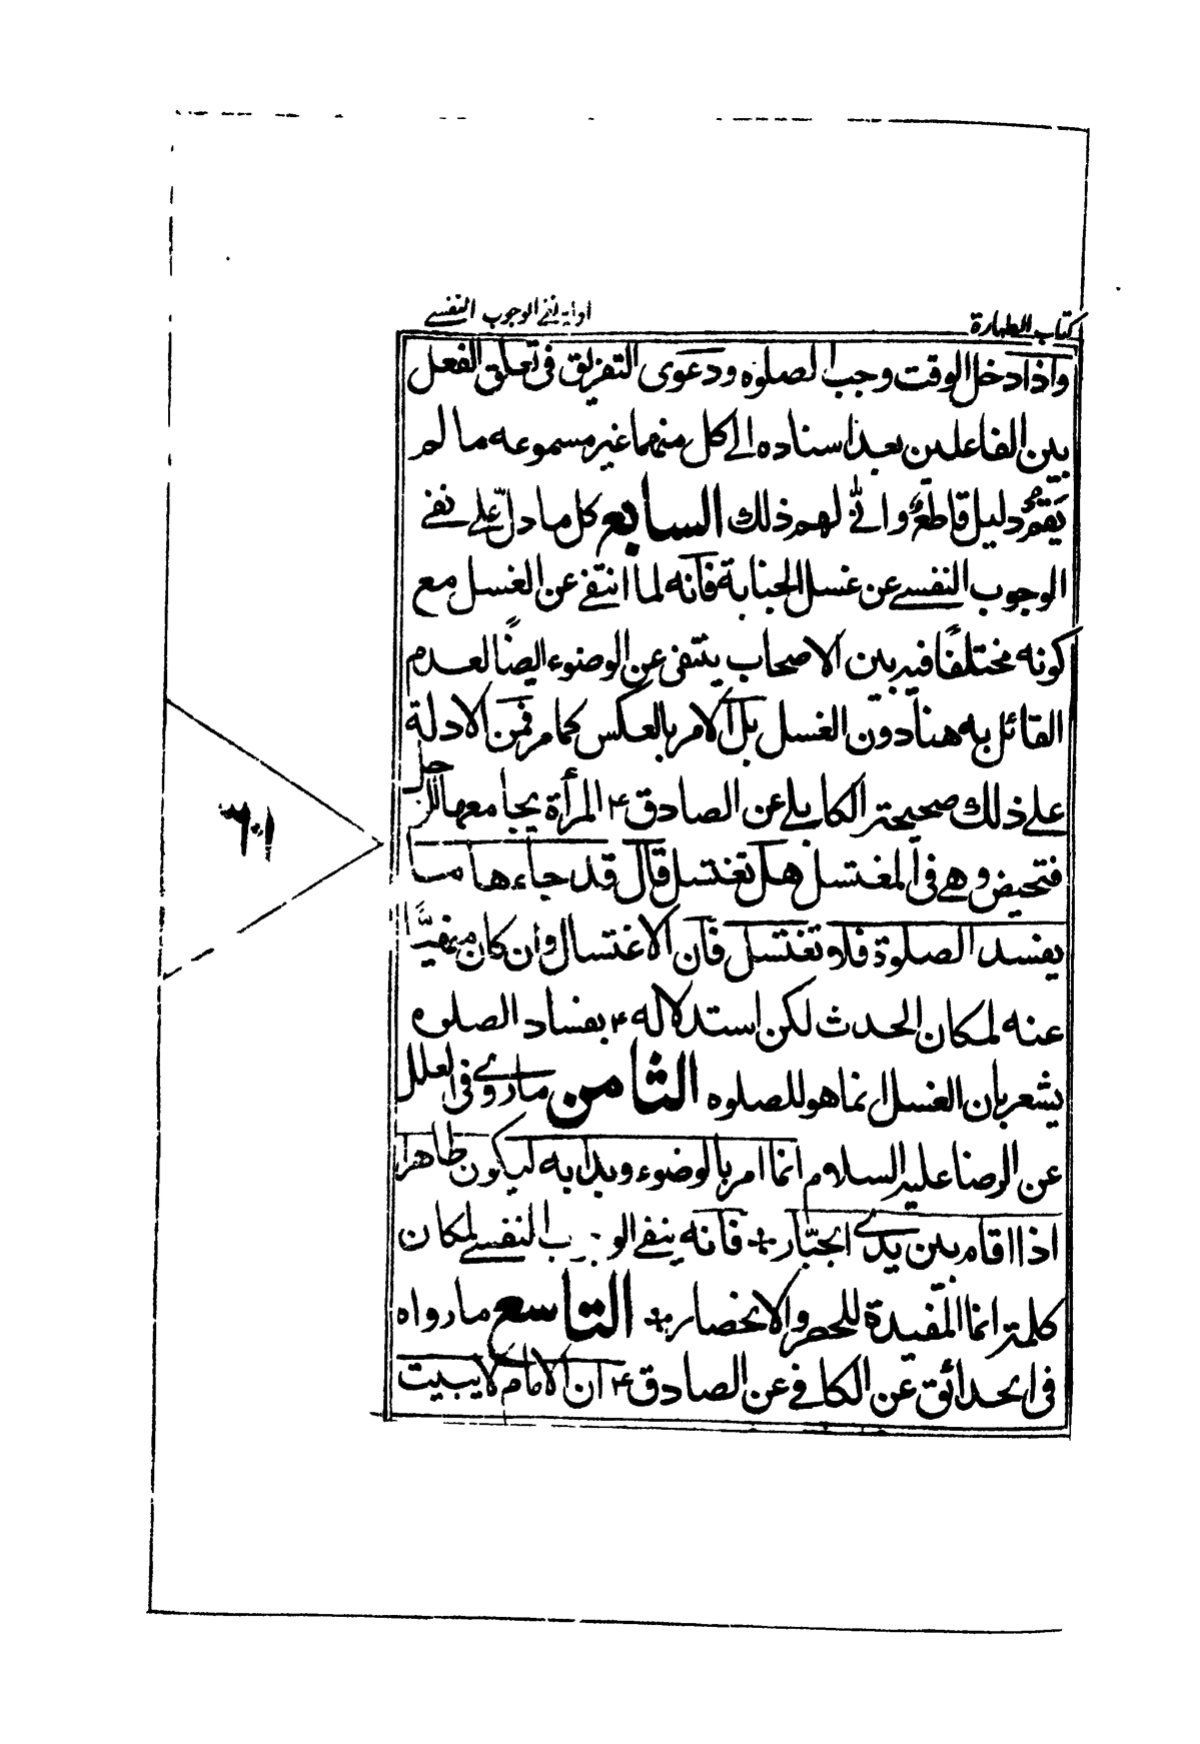 كتاب الطهارة
ادلة نفى الوجوب النفسے
واذا دخل الوقت وجب الصلوه ودعوى التفريق فى تعلق الفعل
بين الفاعلين بعد اسناده الى كل منهما غير مسموعه ما لم
يقم دليل قاطع وانّٰى لهم ذلك السابع كل ما دلّ على نفے
الوجوب النفسے عن غسل الجنابة فانه لما انتفے عن الغسل مع
كونه مختلفًا فيه بين الاصحاب ينتفى عن الوضوء ايضًا لعدم
القائل به هنا دون الغسل بل الامر بالعكس كما مر فمن الادلة
على ذلك صحيحة الكاهلے عن الصادق ع المرأة يجامعها الرجل
فتحيض وهے فى المغتسل هل تغتسل قال قد جاءها ما
يفسد الصلوة فلا تغتسل فان الاغتسال وان كان منهيًّا
عنه لمكان الحدث لكن استدلاله ع بفساد الصلوه
يشعر بان الغسل انما هو للصلوه الثامن ما روے فى العلل
عن الرضا عليه السلام انما امر بالوضوء وبدا به ليكون طاهرا
اذا اقام بين يدے الجبّار فانه ينفے الوجوب النفسے لمكان
كلمة انما المفيدة للحصر والانحصار التاسع ما رواه
فى الحدائق عن الكافے عن الصادق ع ان الامام لا يبيت